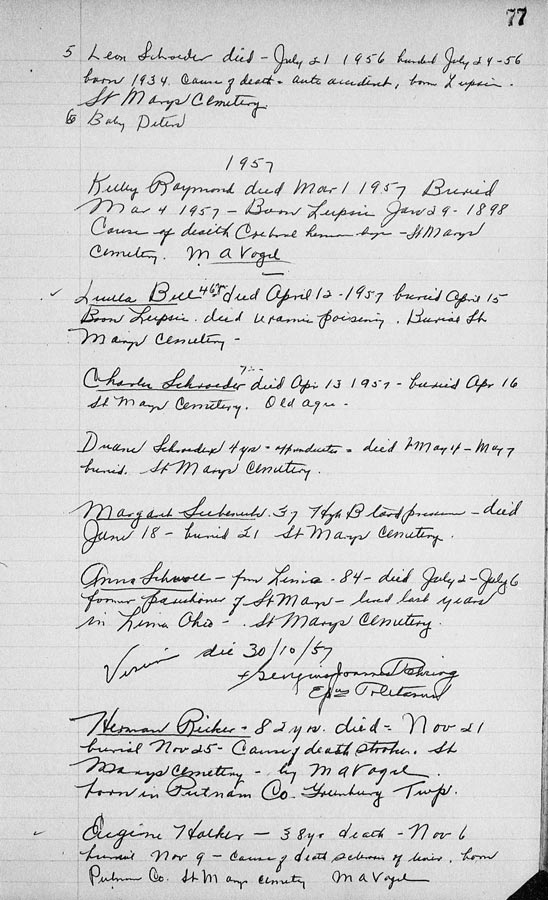 77
5 Leon Schroeder died - July 21 1956 buried July 24-56
born 1934. Cause of death - auto accident, born Leipsic.
St Marys Cemetery.
6 Baby Peters
1957
Raymond died Mar 1 1957 Buried
Mar 4 1957 - Born Leipsic Jan 29 - 1898
Cause of death - St Marys
Cemetery. M A Vogel
Luella Bell 46 yr died April 12 - 1957 buried April 15
Born Leipsic. died uramic poisening. Burial St
Marys Cemetery -
Charles Schroeder died Apr 13 1957 - buried Apr 16
St Marys Cemetery. Old age -
Duane Schroeder 4 yrs - died May 4 - May 7
buried. St Marys Cemetery.
Margaret 57 High Blood pressure - died
June 18 - buried 21 St Marys Cemetery.
Anna - from Lima - 84 - died July 2 - July 6
former parishoner of St Marys - lived last years
in Lima Ohio - . St Marys Cemetery.
die 30/10/57
Herman Ricker - 82 yrs. died - Nov 21
burial Nov 25 - Cause of death stroke. St
Marys Cemetery - by M A Vogel.
born in Putnam Co. Twp.
Eugene - 38 yr death - Nov 6
burial Nov 9 - cause of death of liver, born
Putnam Co. St Marys cemetery M A Vogel